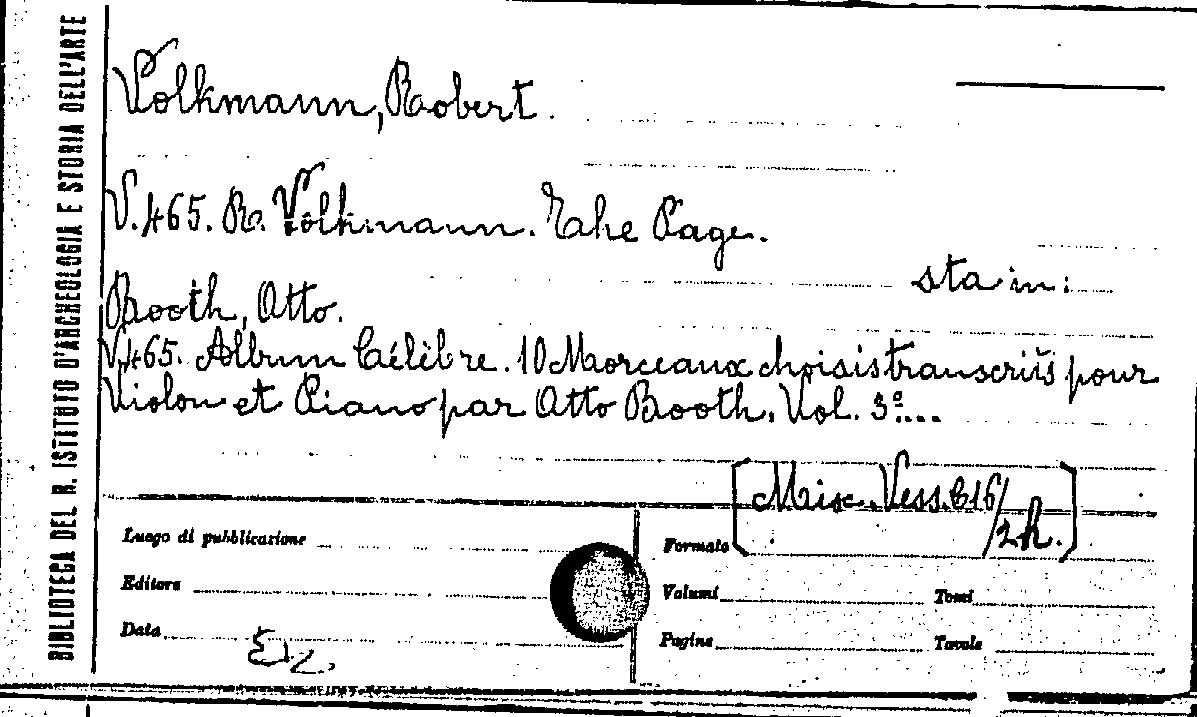 BIBLIOTECA DEL R. ISTITUTO D'ARCHEOLOGIA E STORIA DELL'ARTE
Volkmann, Robert.
V.465. R. Volkmann. The Page.
sta in:
Booth, Otto.
V.465. Album Célèbre. 10 Morceaux choisis transcrits pour
Violon et Piano par Otto Booth. Vol. 3º...
[Misc. Vess. B16/2h.]
Luogo di pubblicazione
Formato
Editore
Volumi
Tomi
Data
Pagine
Tavole